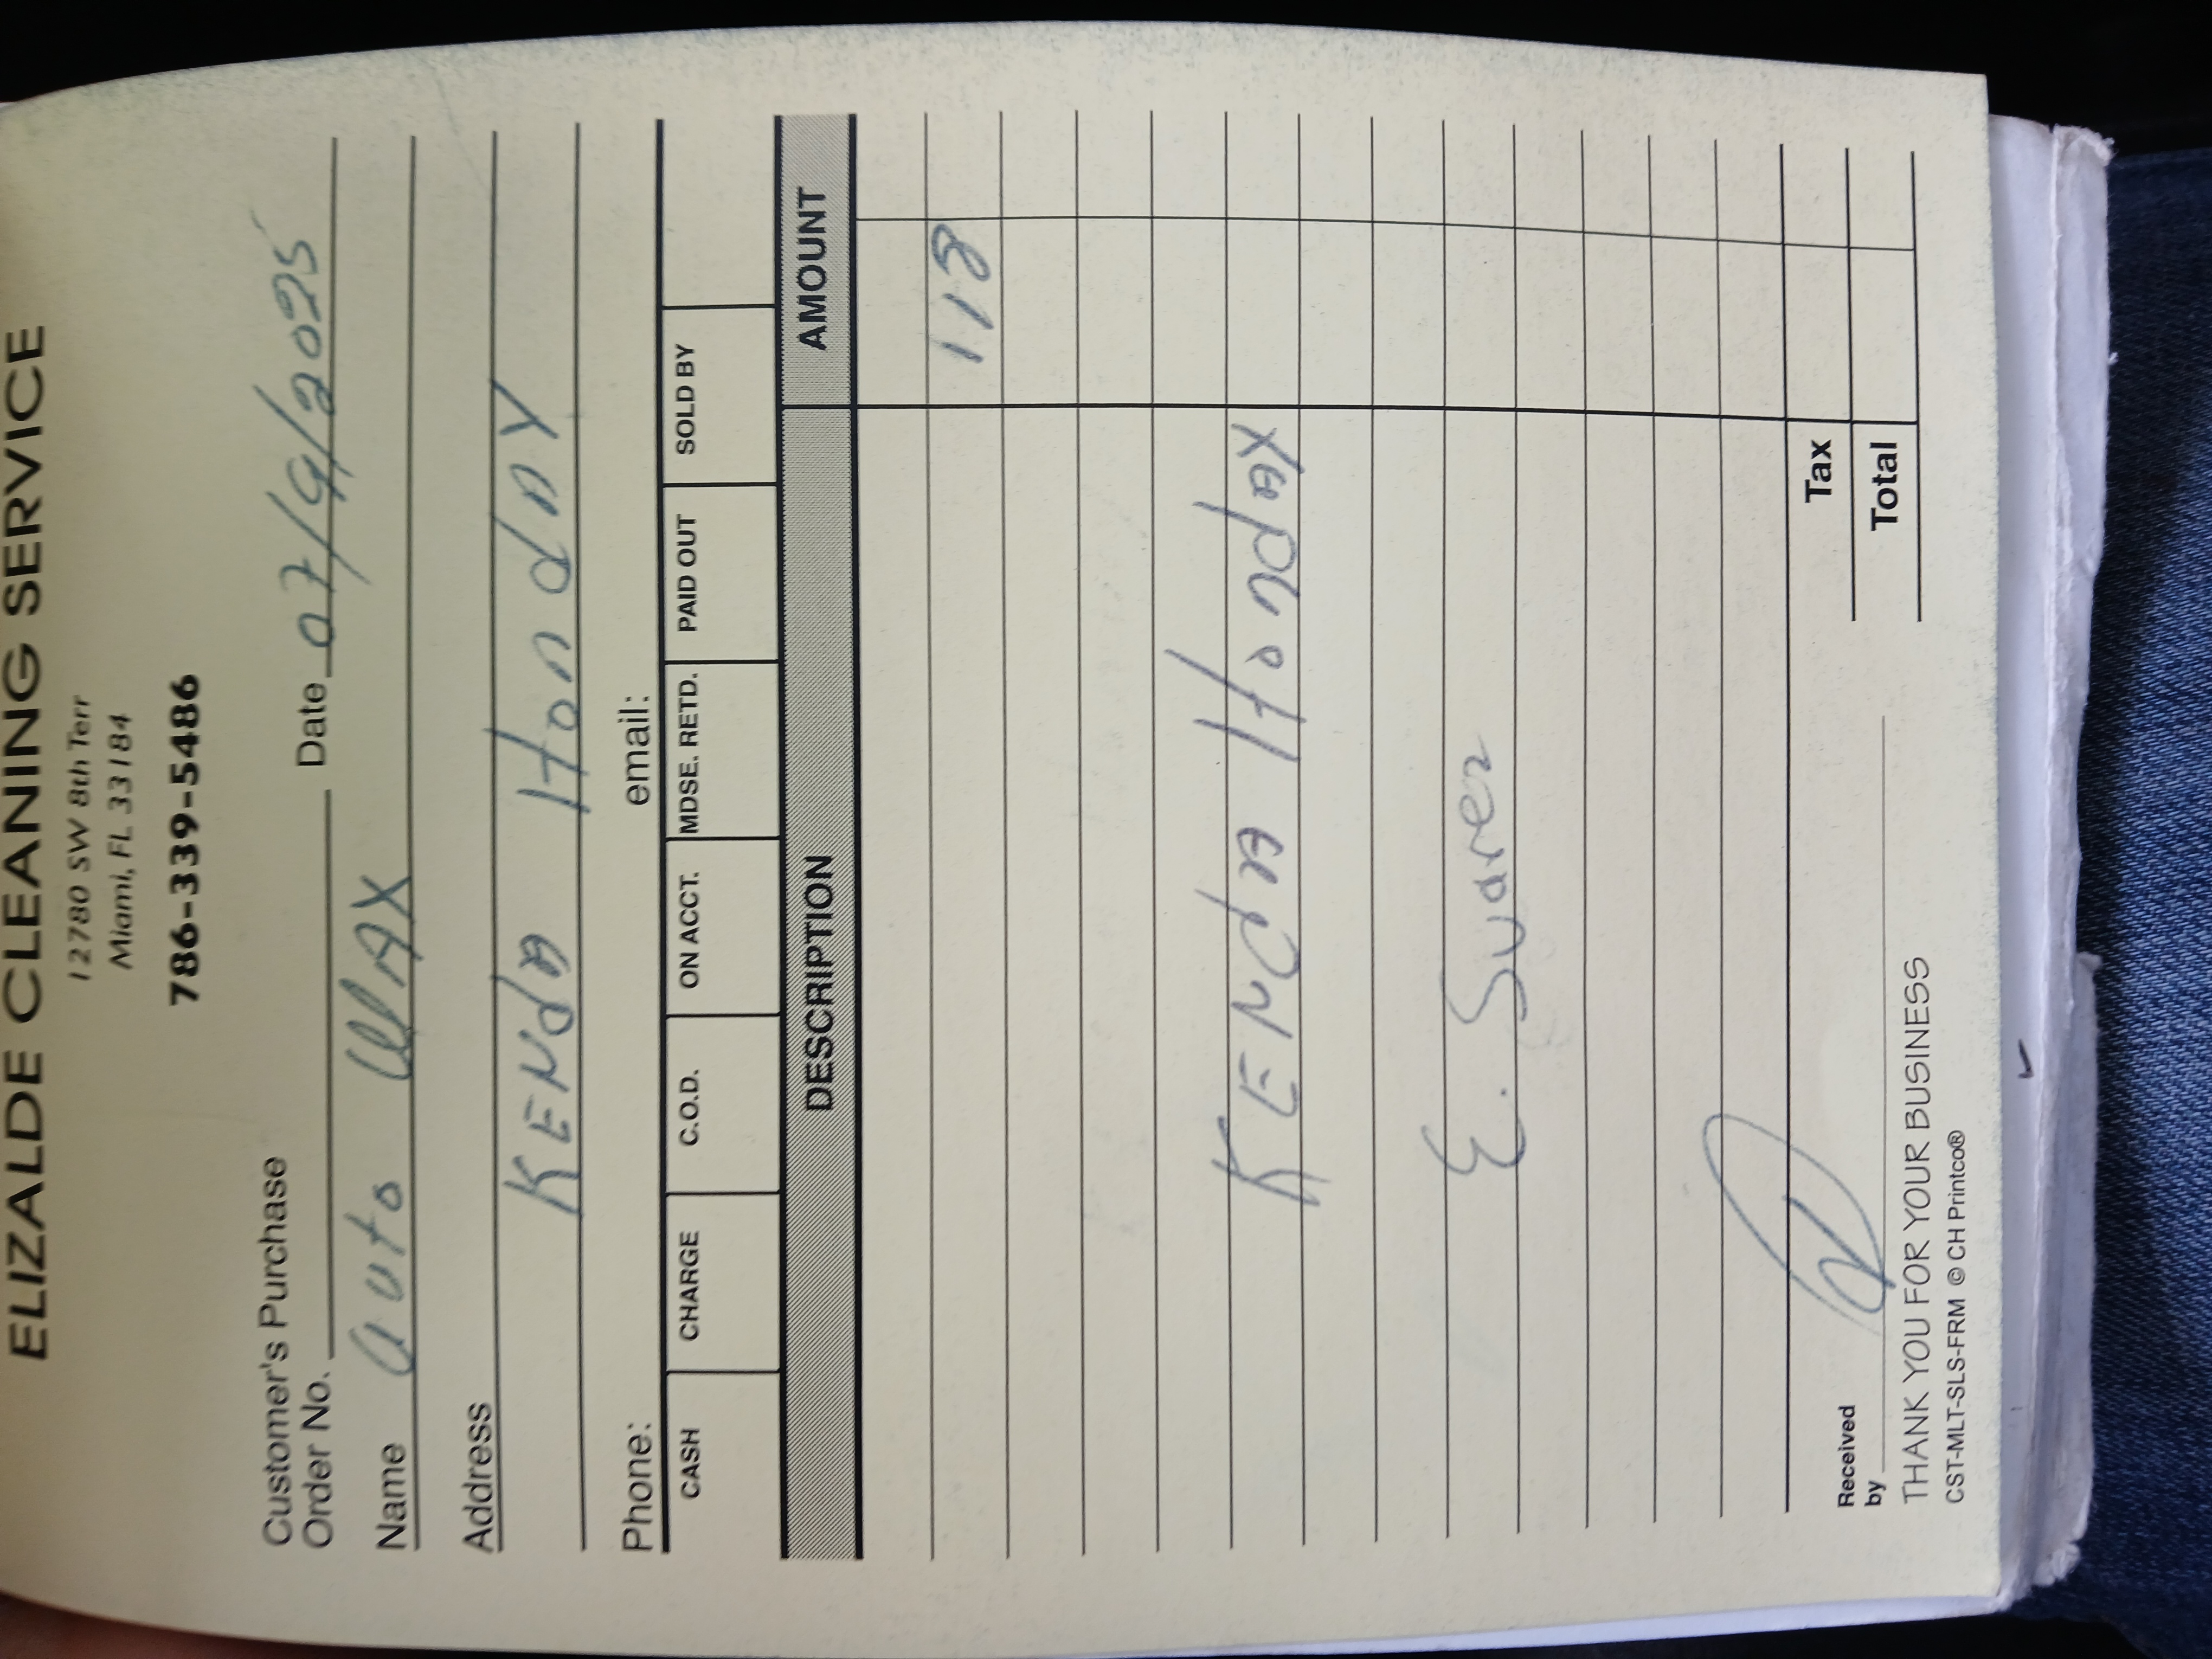 ELIZALDE CLEANING SERVICE
12780 SW 8th Terr
Miami, FL 33184
786-339-5486
Customer's Purchase
Order No. Date 07/9/2025
Name Auto WAX
Address
KENDa HONDAY
Phone: email:
CASH CHARGE C.O.D. ON ACCT. MDSE. RETD. PAID OUT SOLD BY
DESCRIPTION AMOUNT
118
E. Suarez
Tax
Received
by Total
THANK YOU FOR YOUR BUSINESS
CST-MLT-SLS-FRM © CH Printco®